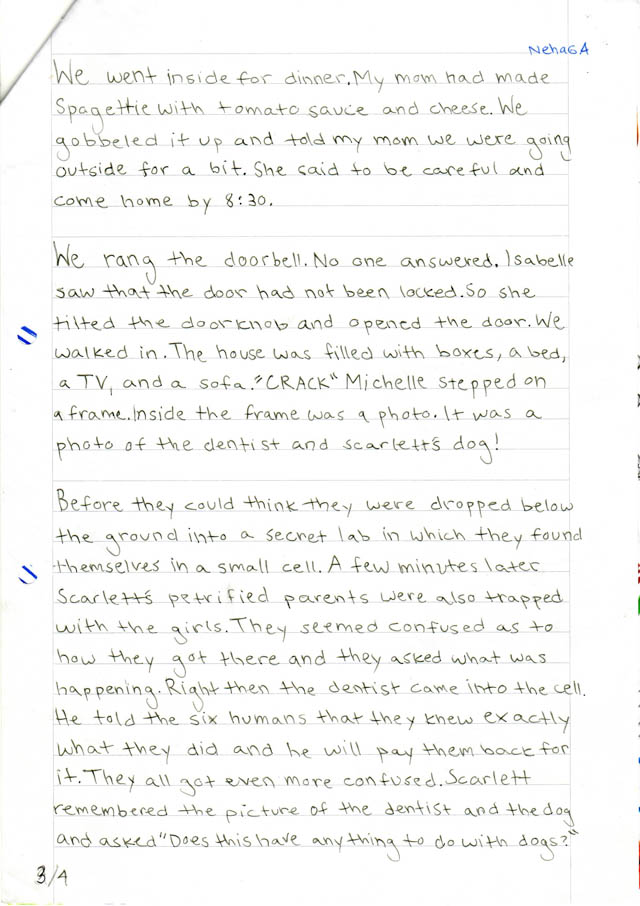 Neha6A
We went inside for dinner. My mom had made
Spagettie with tomato sauce and cheese. We
gobbeled it up and told my mom we were going
outside for a bit. She said to be careful and
come home by 8:30.
We rang the doorbell. No one answered. Isabelle
saw that the door had not been locked. So she
tilted the doorknob and opened the door. We
walked in. The house was filled with boxes, a bed,
a TV, and a sofa. "CRACK" Michelle stepped on
a frame. Inside the frame was a photo. It was a
photo of the dentist and scarlett's dog!
Before they could think they were dropped below
the ground into a secret lab in which they found
themselves in a small cell. A few minutes later
Scarlett's petrified parents were also trapped
with the girls. They seemed confused as to
how they got there and they asked what was
happening. Right then the dentist came into the cell.
He told the six humans that they knew exactly
what they did and he will pay them back for
it. They all got even more confused. Scarlett
remembered the picture of the dentist and the dog
and asked "Does this have anything to do with dogs?"
3/4